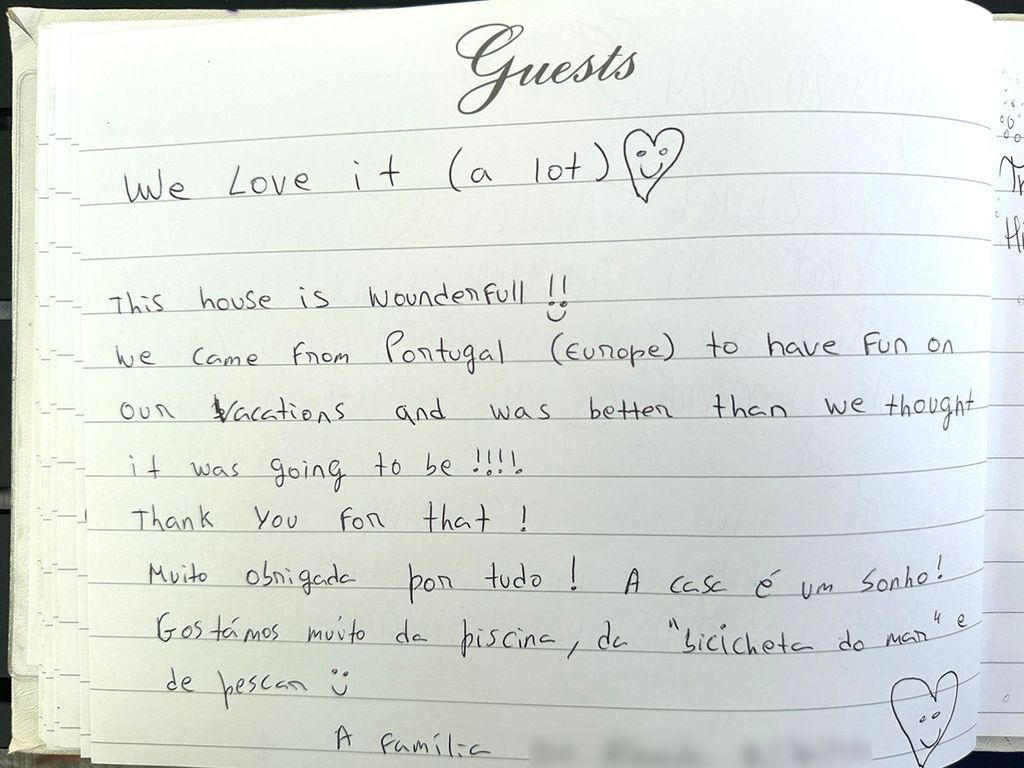 Guests
We Love it (a lot)
This house is wounderfull !!
We came from Portugal (Europe) to have fun on
our Vacations and was better than we thought
it was going to be !!!!
Thank you for that !
Muito obrigada por tudo ! A casa é um sonho!
Gostámos muito da piscina, da "bicicheta do mar" e
de pescar
A família